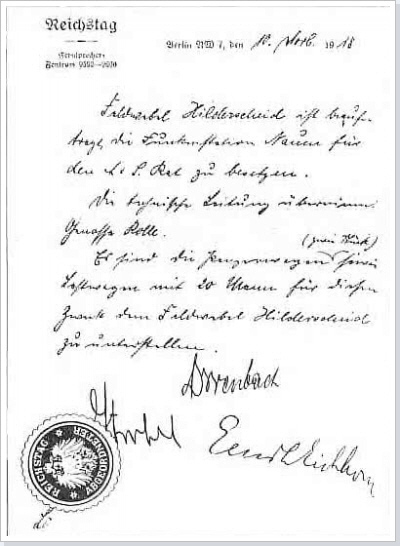 Reichstag
Fernsprecher:
Zentrum 9592—9600
Berlin NW 7, den 10. Novb. 1918
Feldwebel Hilderscheid ist beauf-
tragt, die Funkenstation Nauen für
den A. u. S. Rat zu besetzen.
Die technische Leitung übernimmt
Genosse Rolle.
(zwei Stück)
Es sind die Panzerwagen sowie
Lastwagen mit 20 Mann für diesen
Zweck dem Feldwebel Hilderscheid
zu unterstellen.
Dorenbach
Emil Eichhorn
REICHSTAG